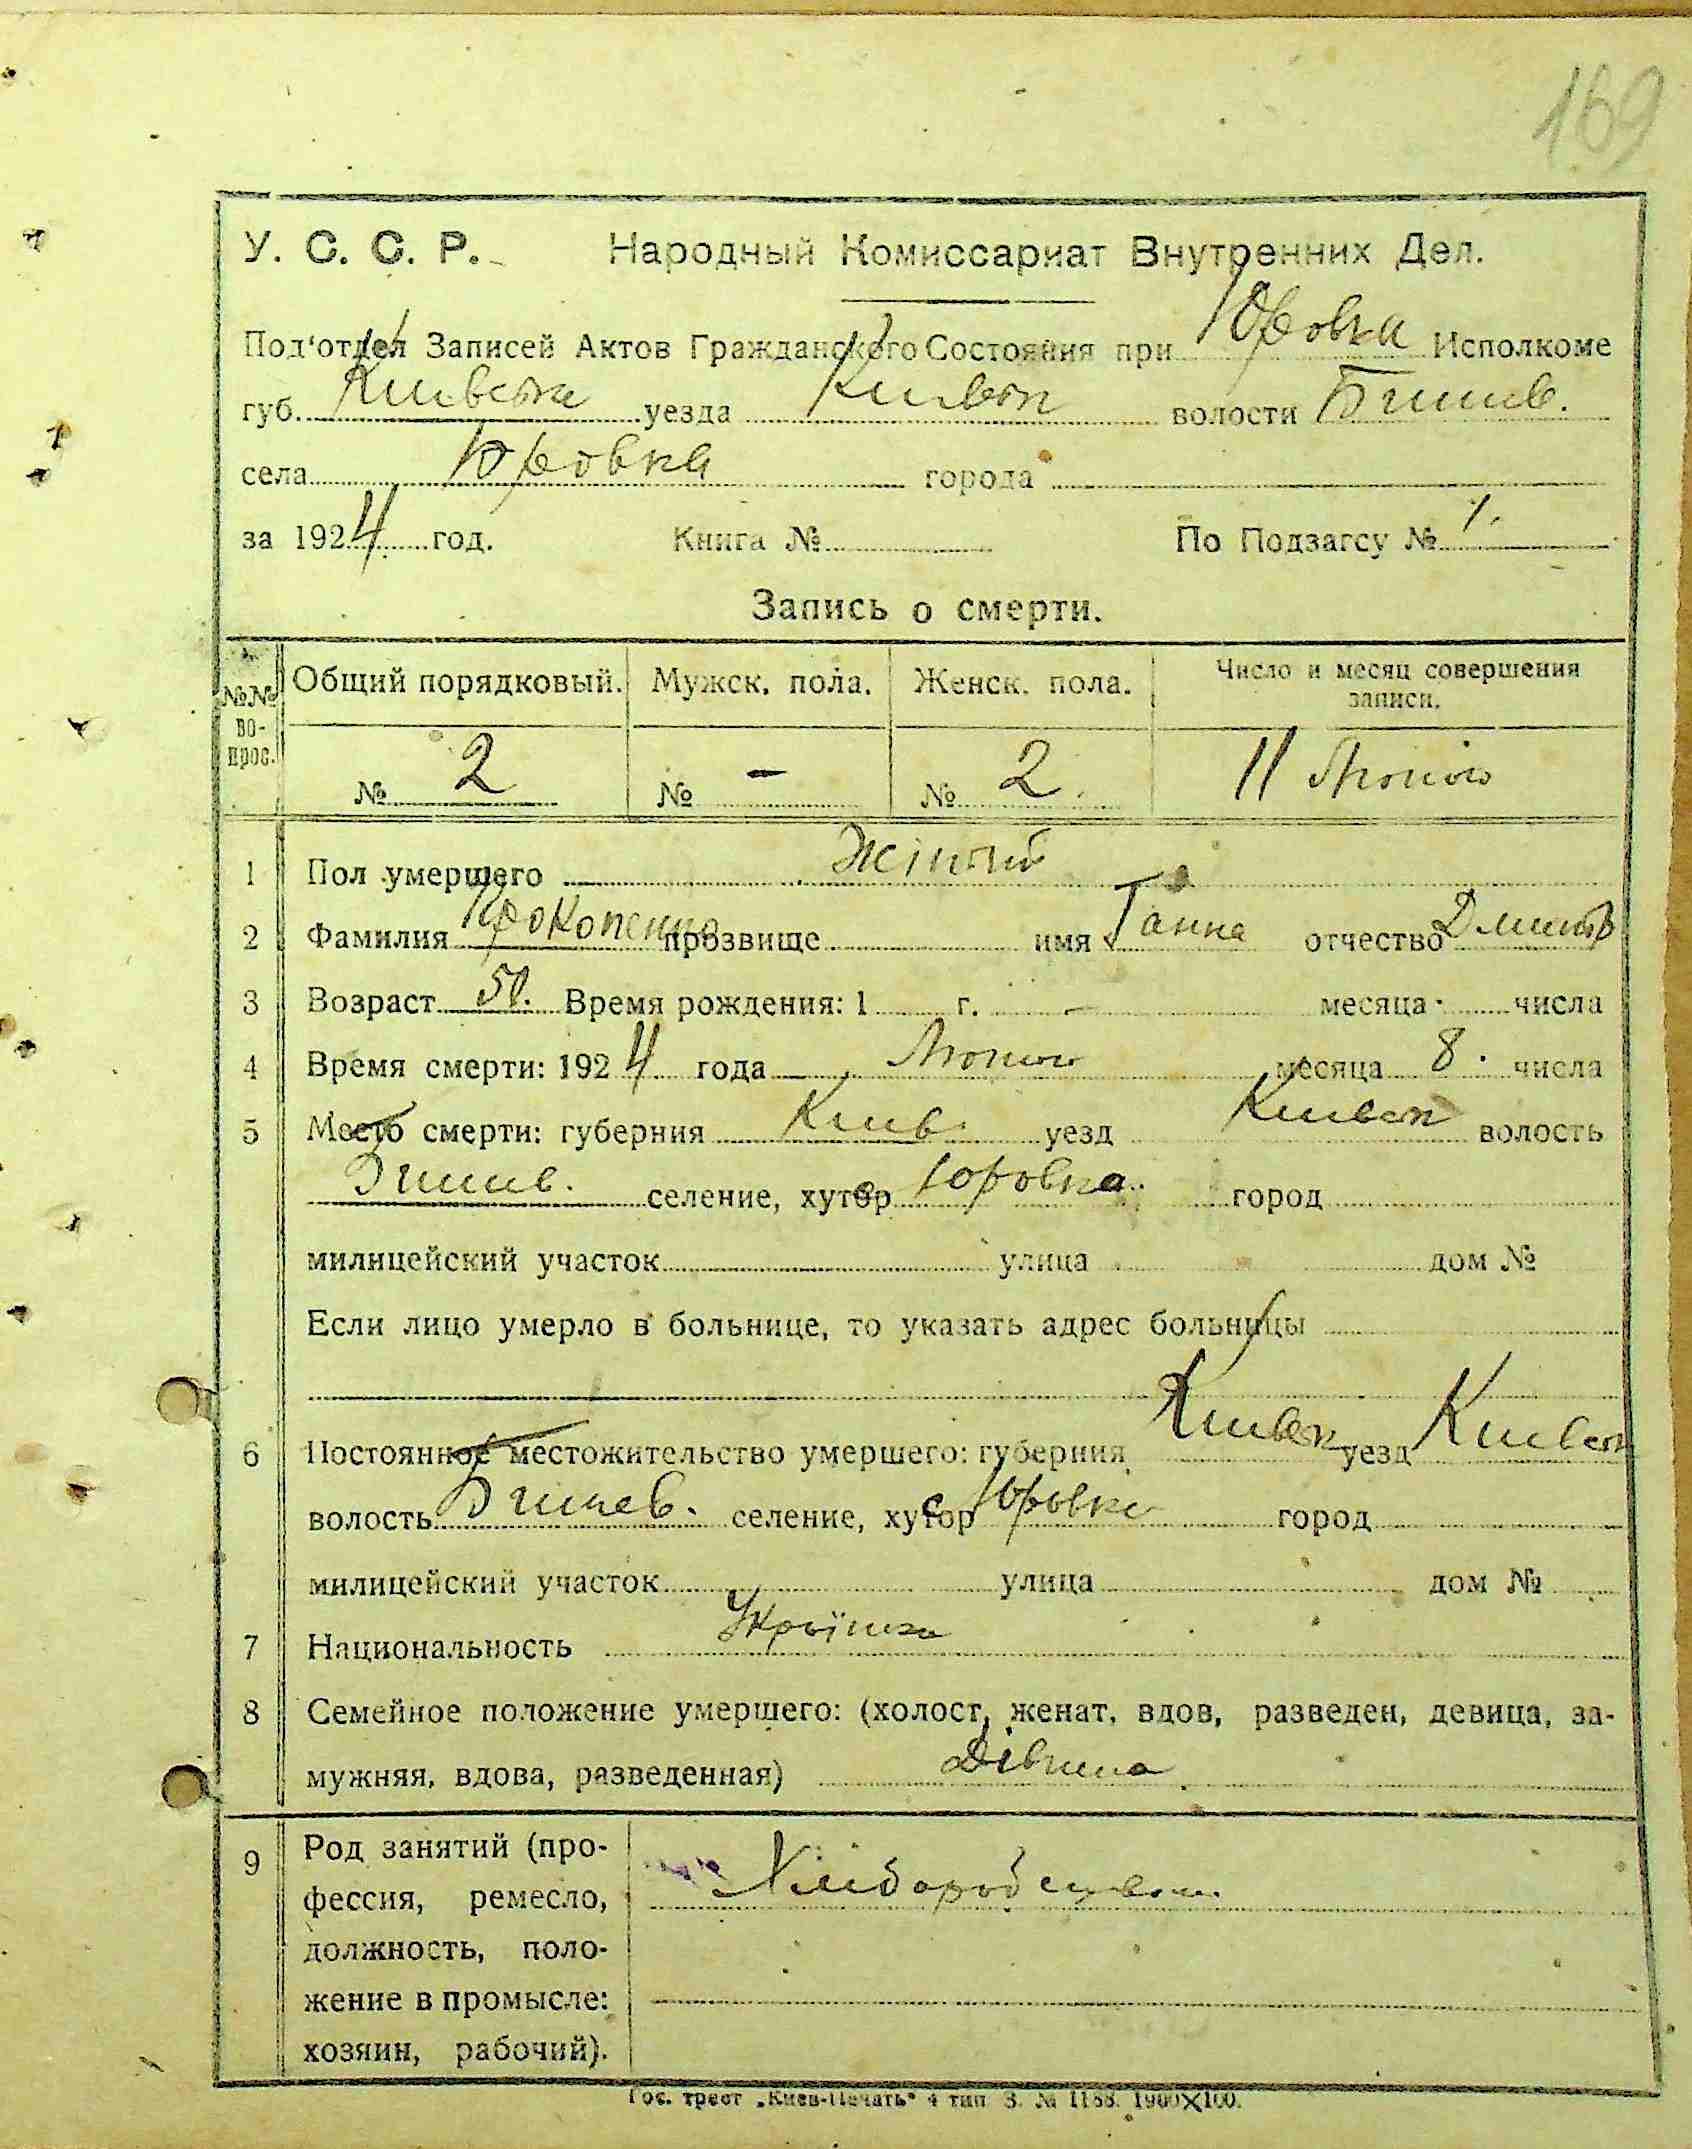 169
У. С. С. Р. Народный Комиссариат Внутренних Дел.
Под'отдел Записей Актов Гражданского Состояния при Юровка Исполкоме
губ. Київська уезда Київськ волости Бишів.
села Юровка города
за 1924 год. Книга № По Подзагсу № 1.
Запись о смерти.
№№ вопрос. Общий порядковый. Мужск. пола. Женск. пола. Число и месяц совершения записи.
№ 2 № - № 2. 11 Лютого
1 Пол умершего Жіночий
2 Фамилия Прокопенко прозвище имя Ганна отчество Дмитр
3 Возраст 50. Время рождения: 1 г. - месяца числа
4 Время смерти: 1924 года Лютого месяца 8. числа
5 Место смерти: губерния Київ. уезд Київськ волость
Бишів. селение, хутор с Юровка город
милицейский участок улица дом №
Если лицо умерло в больнице, то указать адрес больницы
6 Постоянное местожительство умершего: губерния Київськ уезд Київськ
волость Бишев. селение, хутор с Юровка город
милицейский участок улица дом №
7 Национальность Українка
8 Семейное положение умершего: (холост, женат, вдов, разведен, девица, за-
мужняя, вдова, разведенная) Дівчина
9 Род занятий (про-
фессия, ремесло, Хліборобство
должность, поло-
жение в промысле:
хозяин, рабочий).
Гос. трест „Киев-Печать" 4 тип З. № 1188. 1900×100.